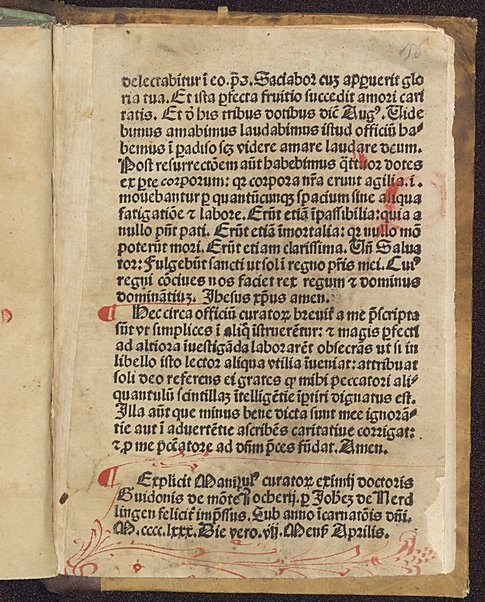 delectabitur ī eo. p̄ꝫ. Saciabor cuꝫ apꝑuerit glo
ria tua. Et ista ꝑfecta fruitio succedit amori cari
tatis. Et ō his tribus dotibus dic̄ Augꝰ. Uide
bimus amabimus laudabimus istud officiū ha⸗
bemus ī ꝑadiso scꝫ videre amare laudare deum.
Post resurrectōem aūt habebimus q̄ttuor dotes
ex ꝑte corporum: qꝛ corpora nr̄a erunt agilia. i.
mouebantur ꝑ quantūcunqꝫ spacium sine aliqua
fatigatiōe ⁊ labore. Erūt etiā īpassibilia: quia a
nullo pn̄t pati. Erūt etiā īmortalia: qꝛ nullo mō
poterūt mori. Erūt etiam clarissima. Un̄ Salua
tor: Fulgebūt sancti ut sol ī regno pr̄is mei. Cuiꝰ
regni cōciues nos faciet rex regum ⁊ dominus
dominātiuꝫ. Jhesus xp̄us amen.
Hec circa officiū curatoꝝ breuit̓ a me p̄scripta
sūt vt simplices ī aliq̄ īstruerētur: ⁊ magis ꝑfecti
ad altiora īuestigāda laborarēt obsecrās ut si in
libello isto lector aliqua vtilia īueniat: attribuat
soli deo referens ei grates qͥ mihi peccatori ali⸗
quantulū scintillaꝫ ītelligētie īꝑtiri dignatus est.
Illa aūt que minus bene dicta sunt mee ignorā⸗
tie aut ī aduertētie ascribēs caritatiue corrigat:
⁊ ꝓ me pcc̄atore ad dn̄m p̄ces fūdat. Amen.
Explicit Manipulꝰ curatoꝝ eximij doctoris
Guidonis de mōte rocherij. ꝑ Johēꝫ de Nerd
lingen felicit̓ imp̄ssus. Sub anno īcarnatōis dn̄i.
M.cccc.lxxx. Die vero .vij. Mensꝭ Aprilis.